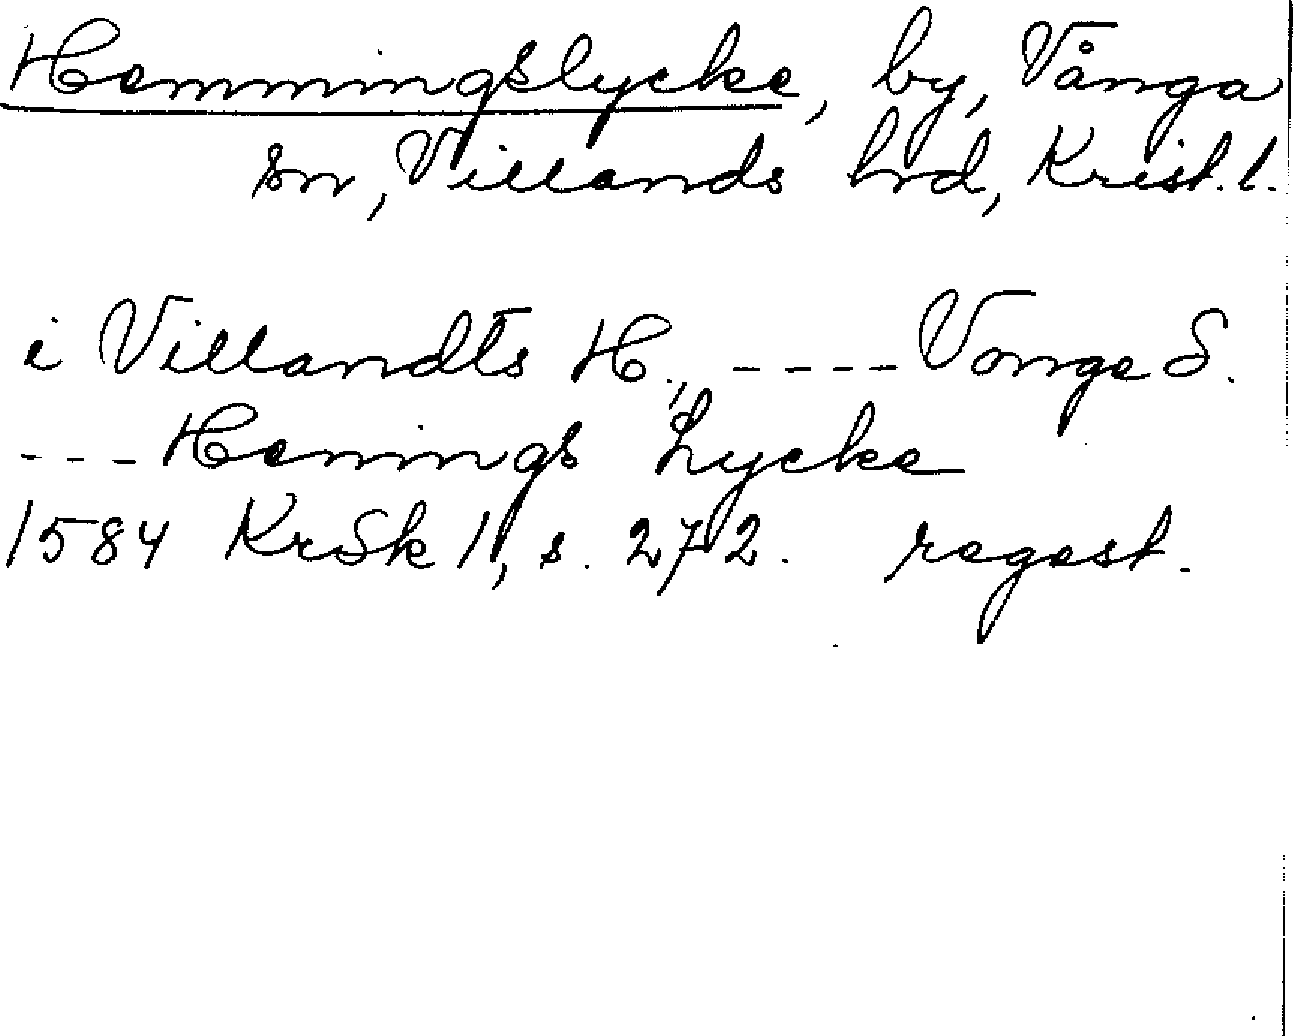 Hemmingslycke, by, Vånga
sn, Villands hrd, Krist. l.
i Villandts H., ---- Vonge S.
--- Hemings Lycke
1584 KrSk 1, s. 272. regest.